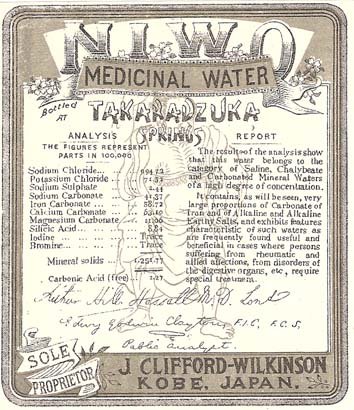 NIWO
MEDICINAL WATER
Bottled
AT
TAKARADZUKA
SPRINGS
ANALYSIS
THE FIGURES REPRESENT
PARTS IN 100,000
Sodium Chloride...
Potassium Chloride
Sodium Sulphate
Sodium Carbonate 41.37
Iron Carbonate
Calcium Carbonate
Magnesium Carbonate
Silicic Acid 8.84
Iodine Trace
Bromine Trace
Mineral solids
Carbonic Acid (free)
REPORT
The results of the analysis show
that this water belongs to the
category of Saline, Chalybeate
and Carbonated Mineral Waters
of a high degree of concentation.
It contains, as will be seen, very
large proportions of Carbonate of
Iron and of Alkaline and Alkaline
Earthy Salts, and exhibits features
characteristic of such waters as
are frequently found useful and
beneficial in cases where persons
suffering from rheumatic and
allied affections, from disorders of
the digestive organs, etc, require
special treatment.
Arthur Hill Hassall M.D. Lond
Edwy Godwin Clayton, F.I.C, F.C.S,
Public Analyst.
SOLE
PROPRIETOR
J. CLIFFORD-WILKINSON
KOBE, JAPAN.